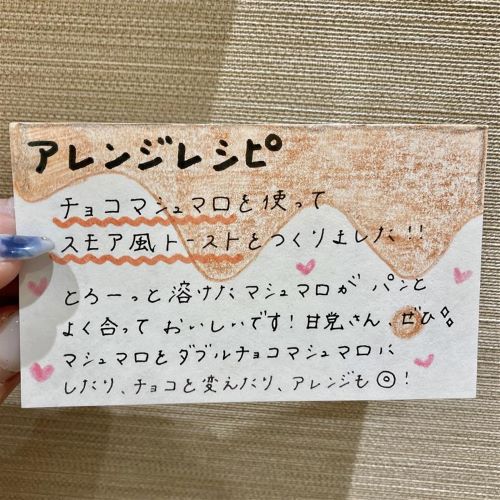 アレンジレシピ
チョコマシュマロを使って
スモア風トーストをつくりました!!
とろーっと溶けたマシュマロが パンと
よく合って おいしいです!甘党さん、ぜひ
マシュマロを ダブルチョコマシュマロに
したり、チョコを変えたり、アレンジも ◎!